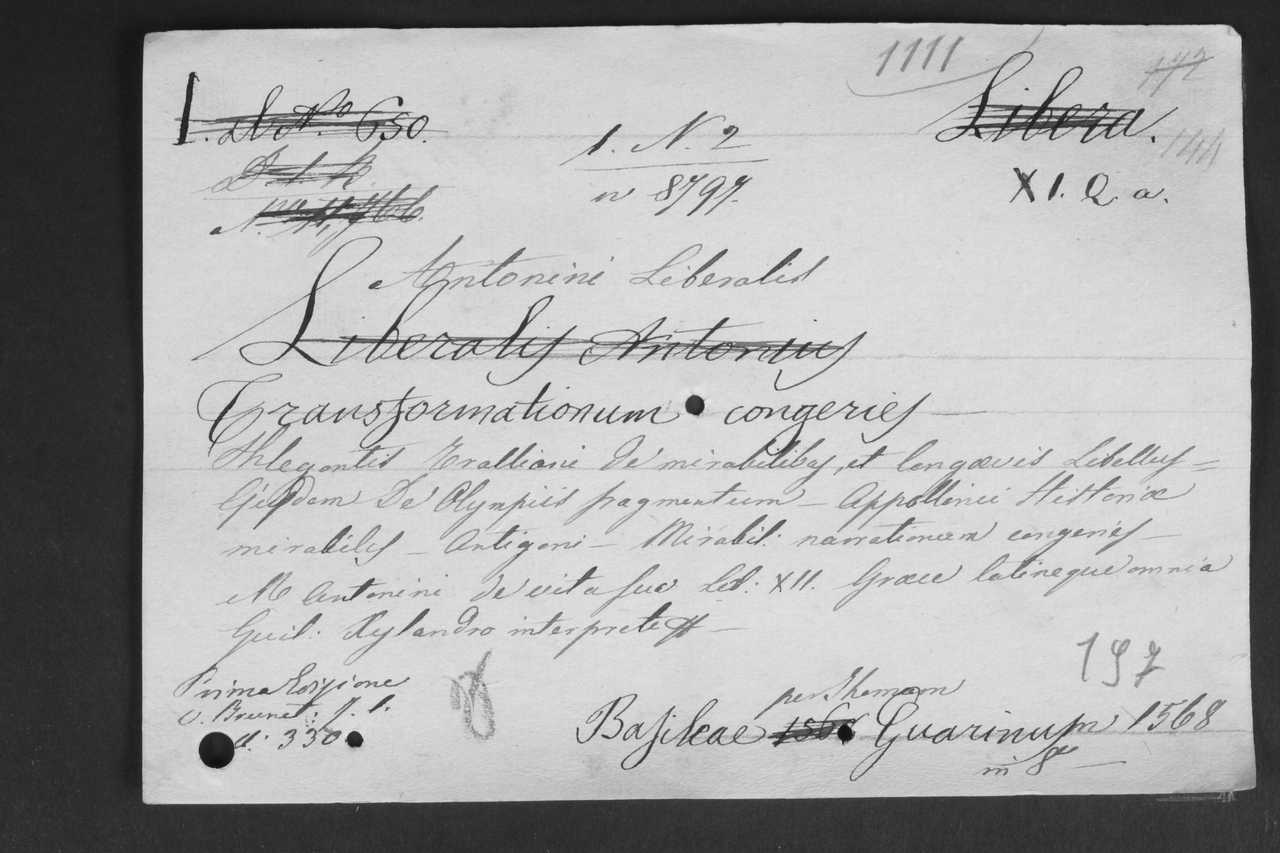 1111
172
I. L N.o 650.
Libera.
1. N. 2
144
n 8797.
XI. Q. a.
Antonini Liberalis
Liberalis Antonius
Transformationum congeries —
Phlegontis Tralliani de mirabilibus, et longævis Libellus =
Ejusdem De Olympiis fragmentum — Appollonii Historiæ
mirabiles — Antigoni — Mirabil: narrationum congeries —
M Antonini de vita sua Lib: XII. Græce latineque omnia
Guil: Xylandro interprete —
197
Prima Edizione
V. Brunet: T. 1.
d: 330
per Thomam
Basileae 156 Guarinum 1568
in 8o —